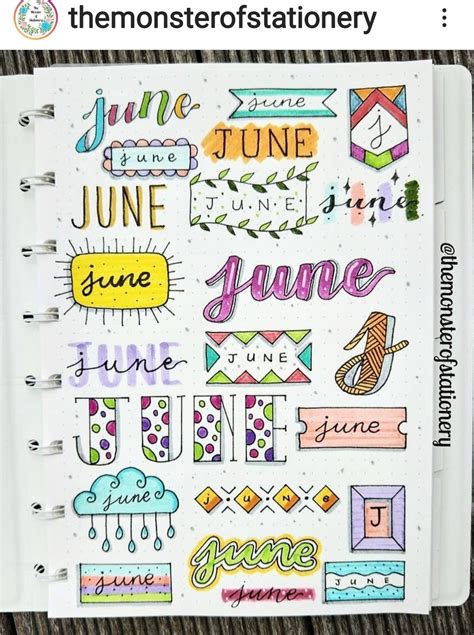 themonsterofstationery
june
june
j
june
JUNE
JUNE
J·U·N·E
june
june
june
JUNE
june
JUNE
J
JUNE
june
june
june
J
june
june
june
JUNE
@themonsterofstationery